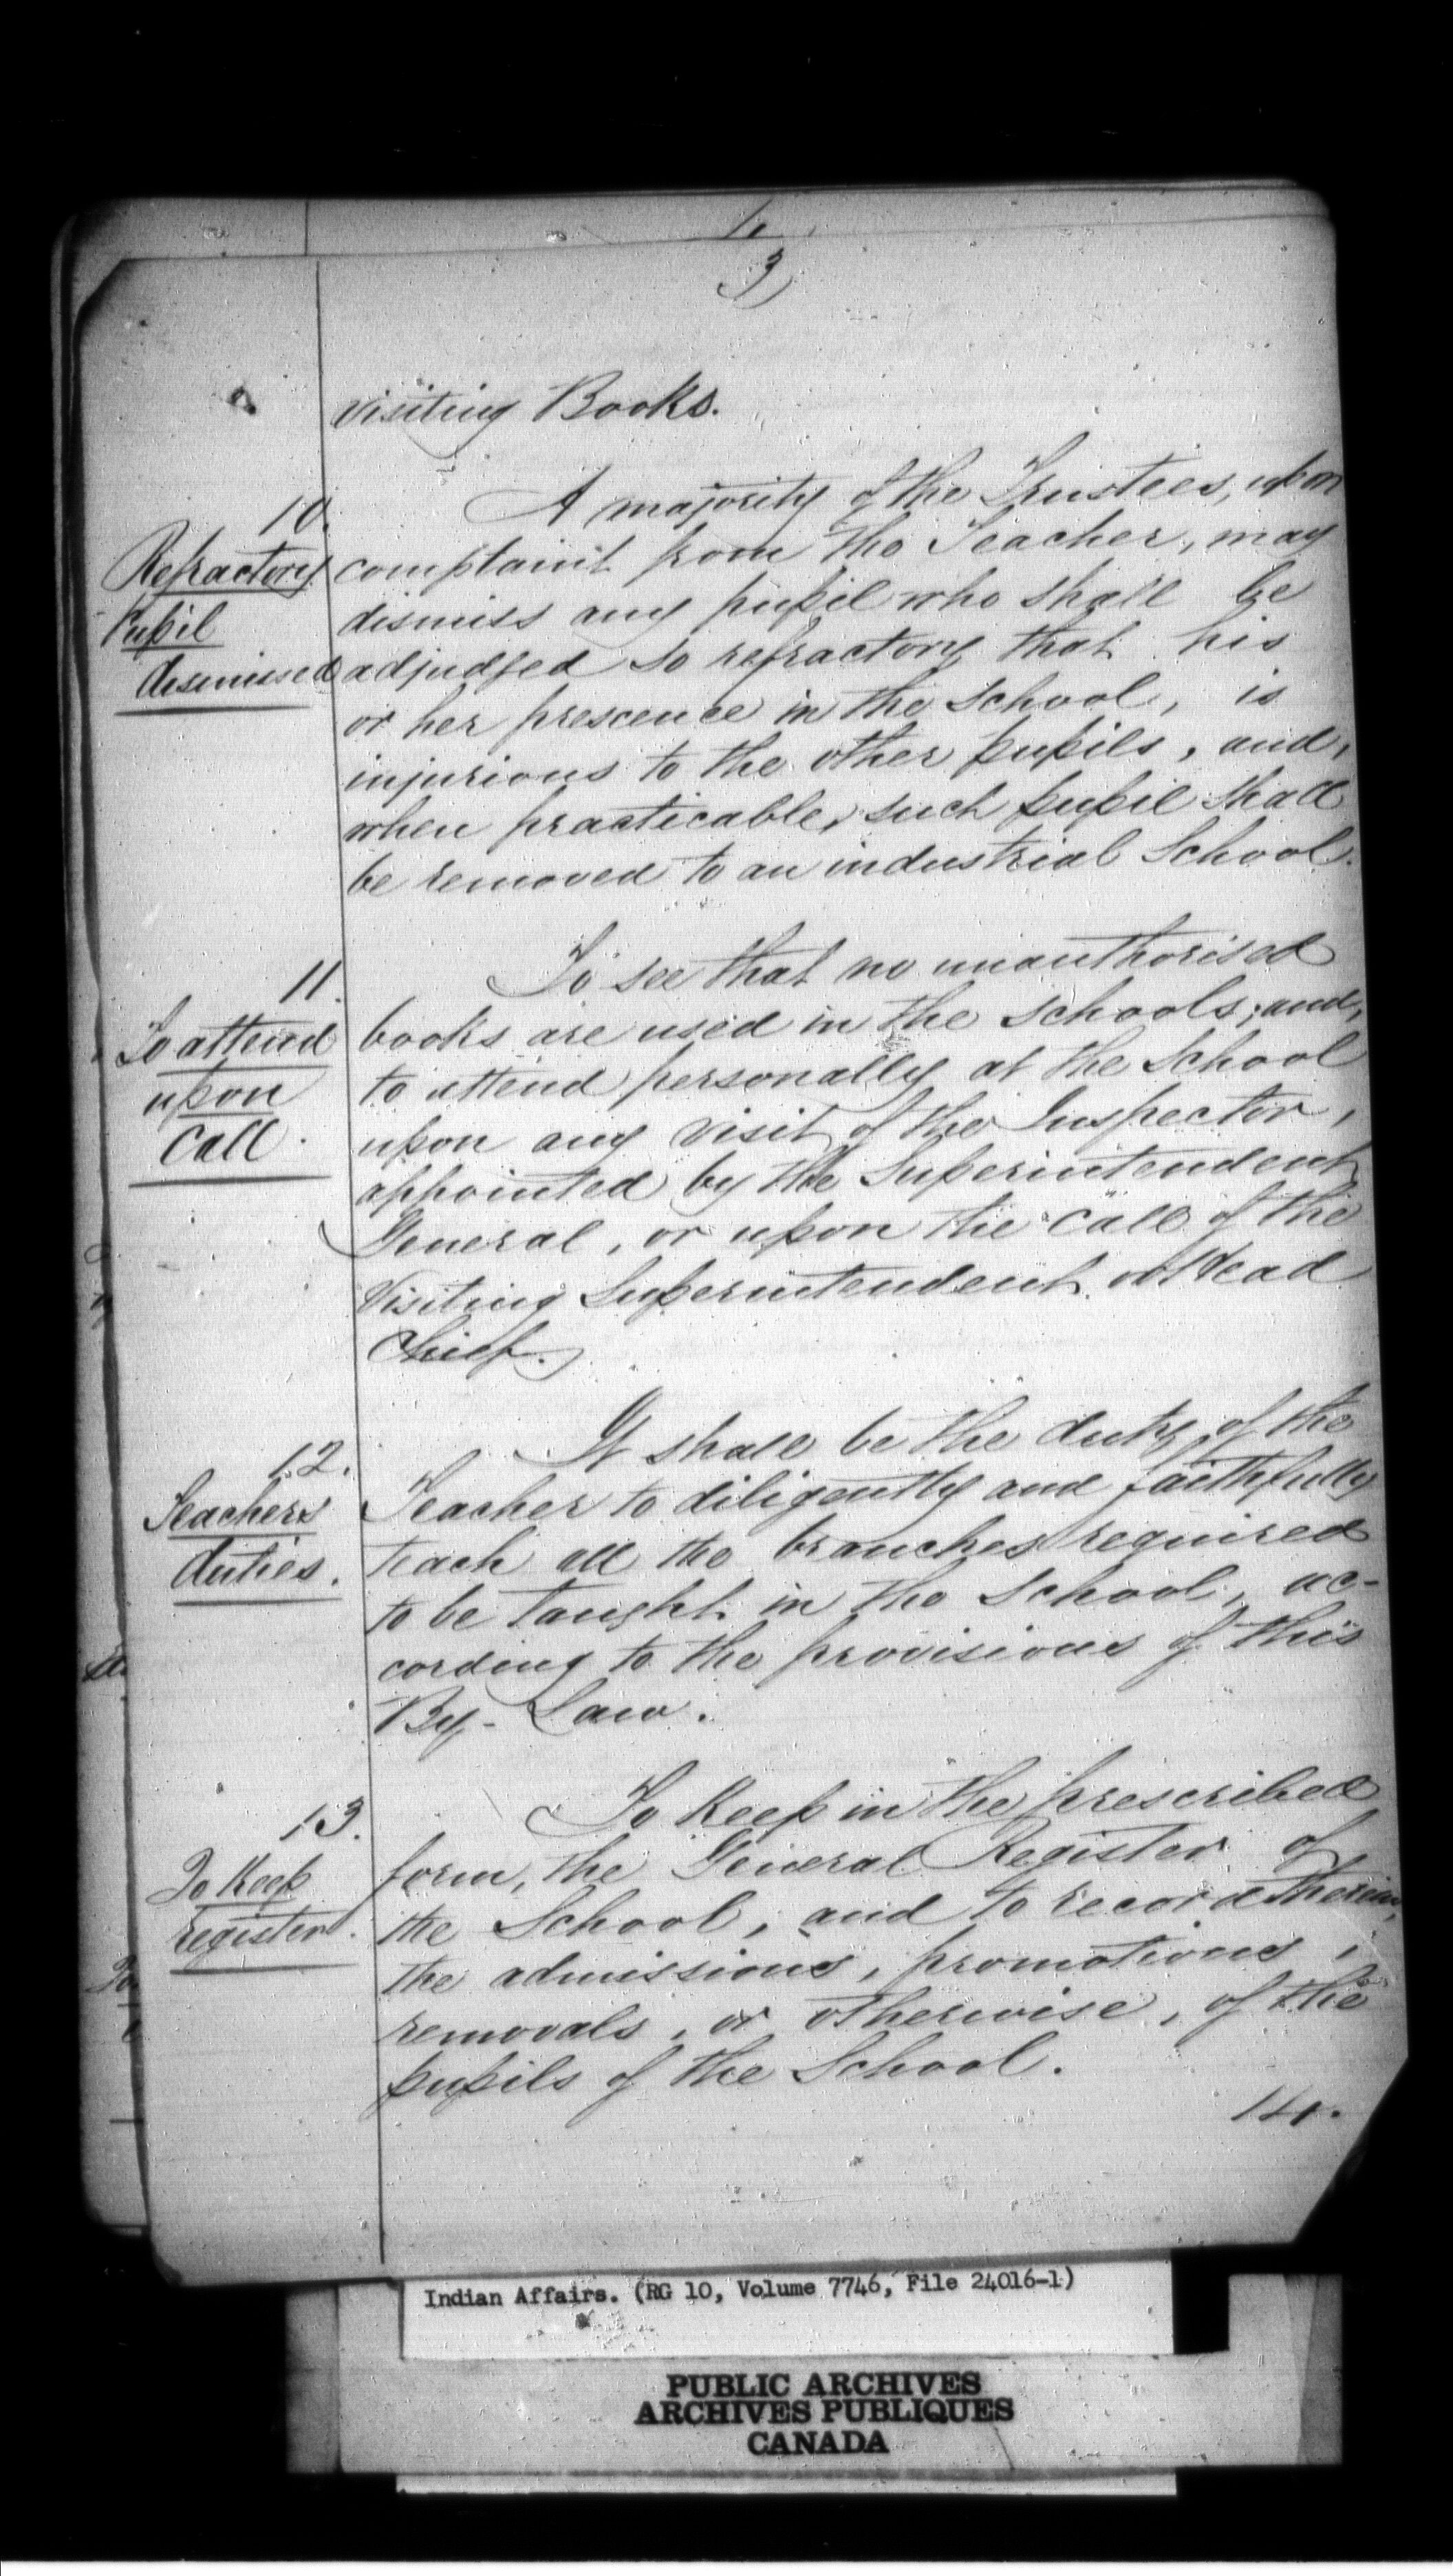 3)
visiting Books.
10.
Refractory
Pupil
dismissed
A majority of the Trustees, upon
complaint from the Teacher, may
dismiss any pupil who shall be
adjudged so refractory that his
or her prescence in the school, is
injurious to the other pupils, and,
when practicable, such pupil shall
be removed to an industrial School.
11.
To attend
upon
Call.
To see that no unauthorised
books are used in the schools; and,
to attend personally at the School
upon any visit of the Inspector,
appointed by the Superintendent
General, or upon the call of the
Visiting Superintendent or Head
Chief.
12.
Teachers
duties.
It shall be the duty of the
Teacher to diligently and faithfully
teach all the branches required
to be taught in the School, ac-
cording to the provisions of this
By-Law.
13.
To Keep
register.
To Keep in the prescribed
form, the General Register of
the School, and to record therein,
the admissions, promotions,
removals, or otherwise, of the
pupils of the School.
14.
Indian Affairs. (RG 10, Volume 7746, File 24016-1)
PUBLIC ARCHIVES
ARCHIVES PUBLIQUES
CANADA